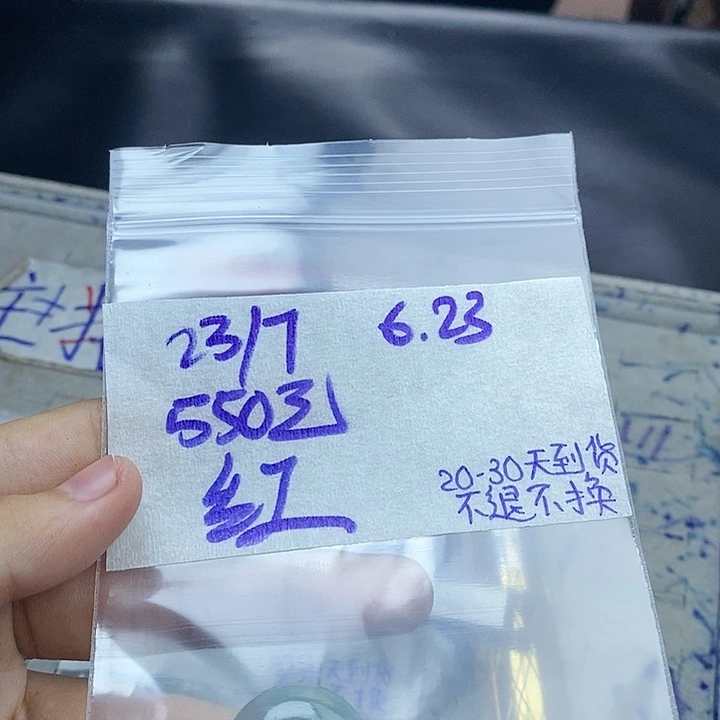 23/7 6.23
550元
红
20-30天到货
不退不换